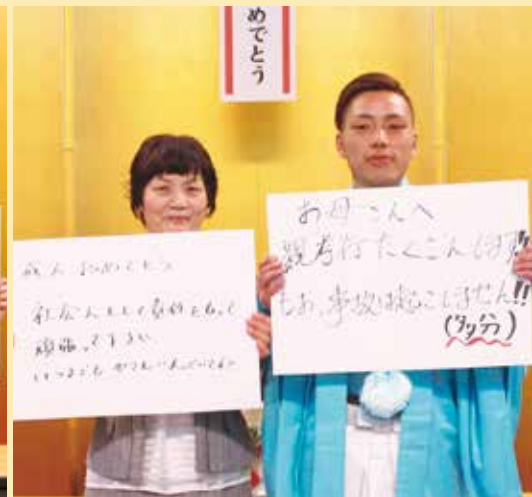 めでとう
成人おめでとう
社会人として責任をもって
頑張って下さい
お母さんへ
親孝行たくさんします!!
もお、事故は起こしません!!
(多分)